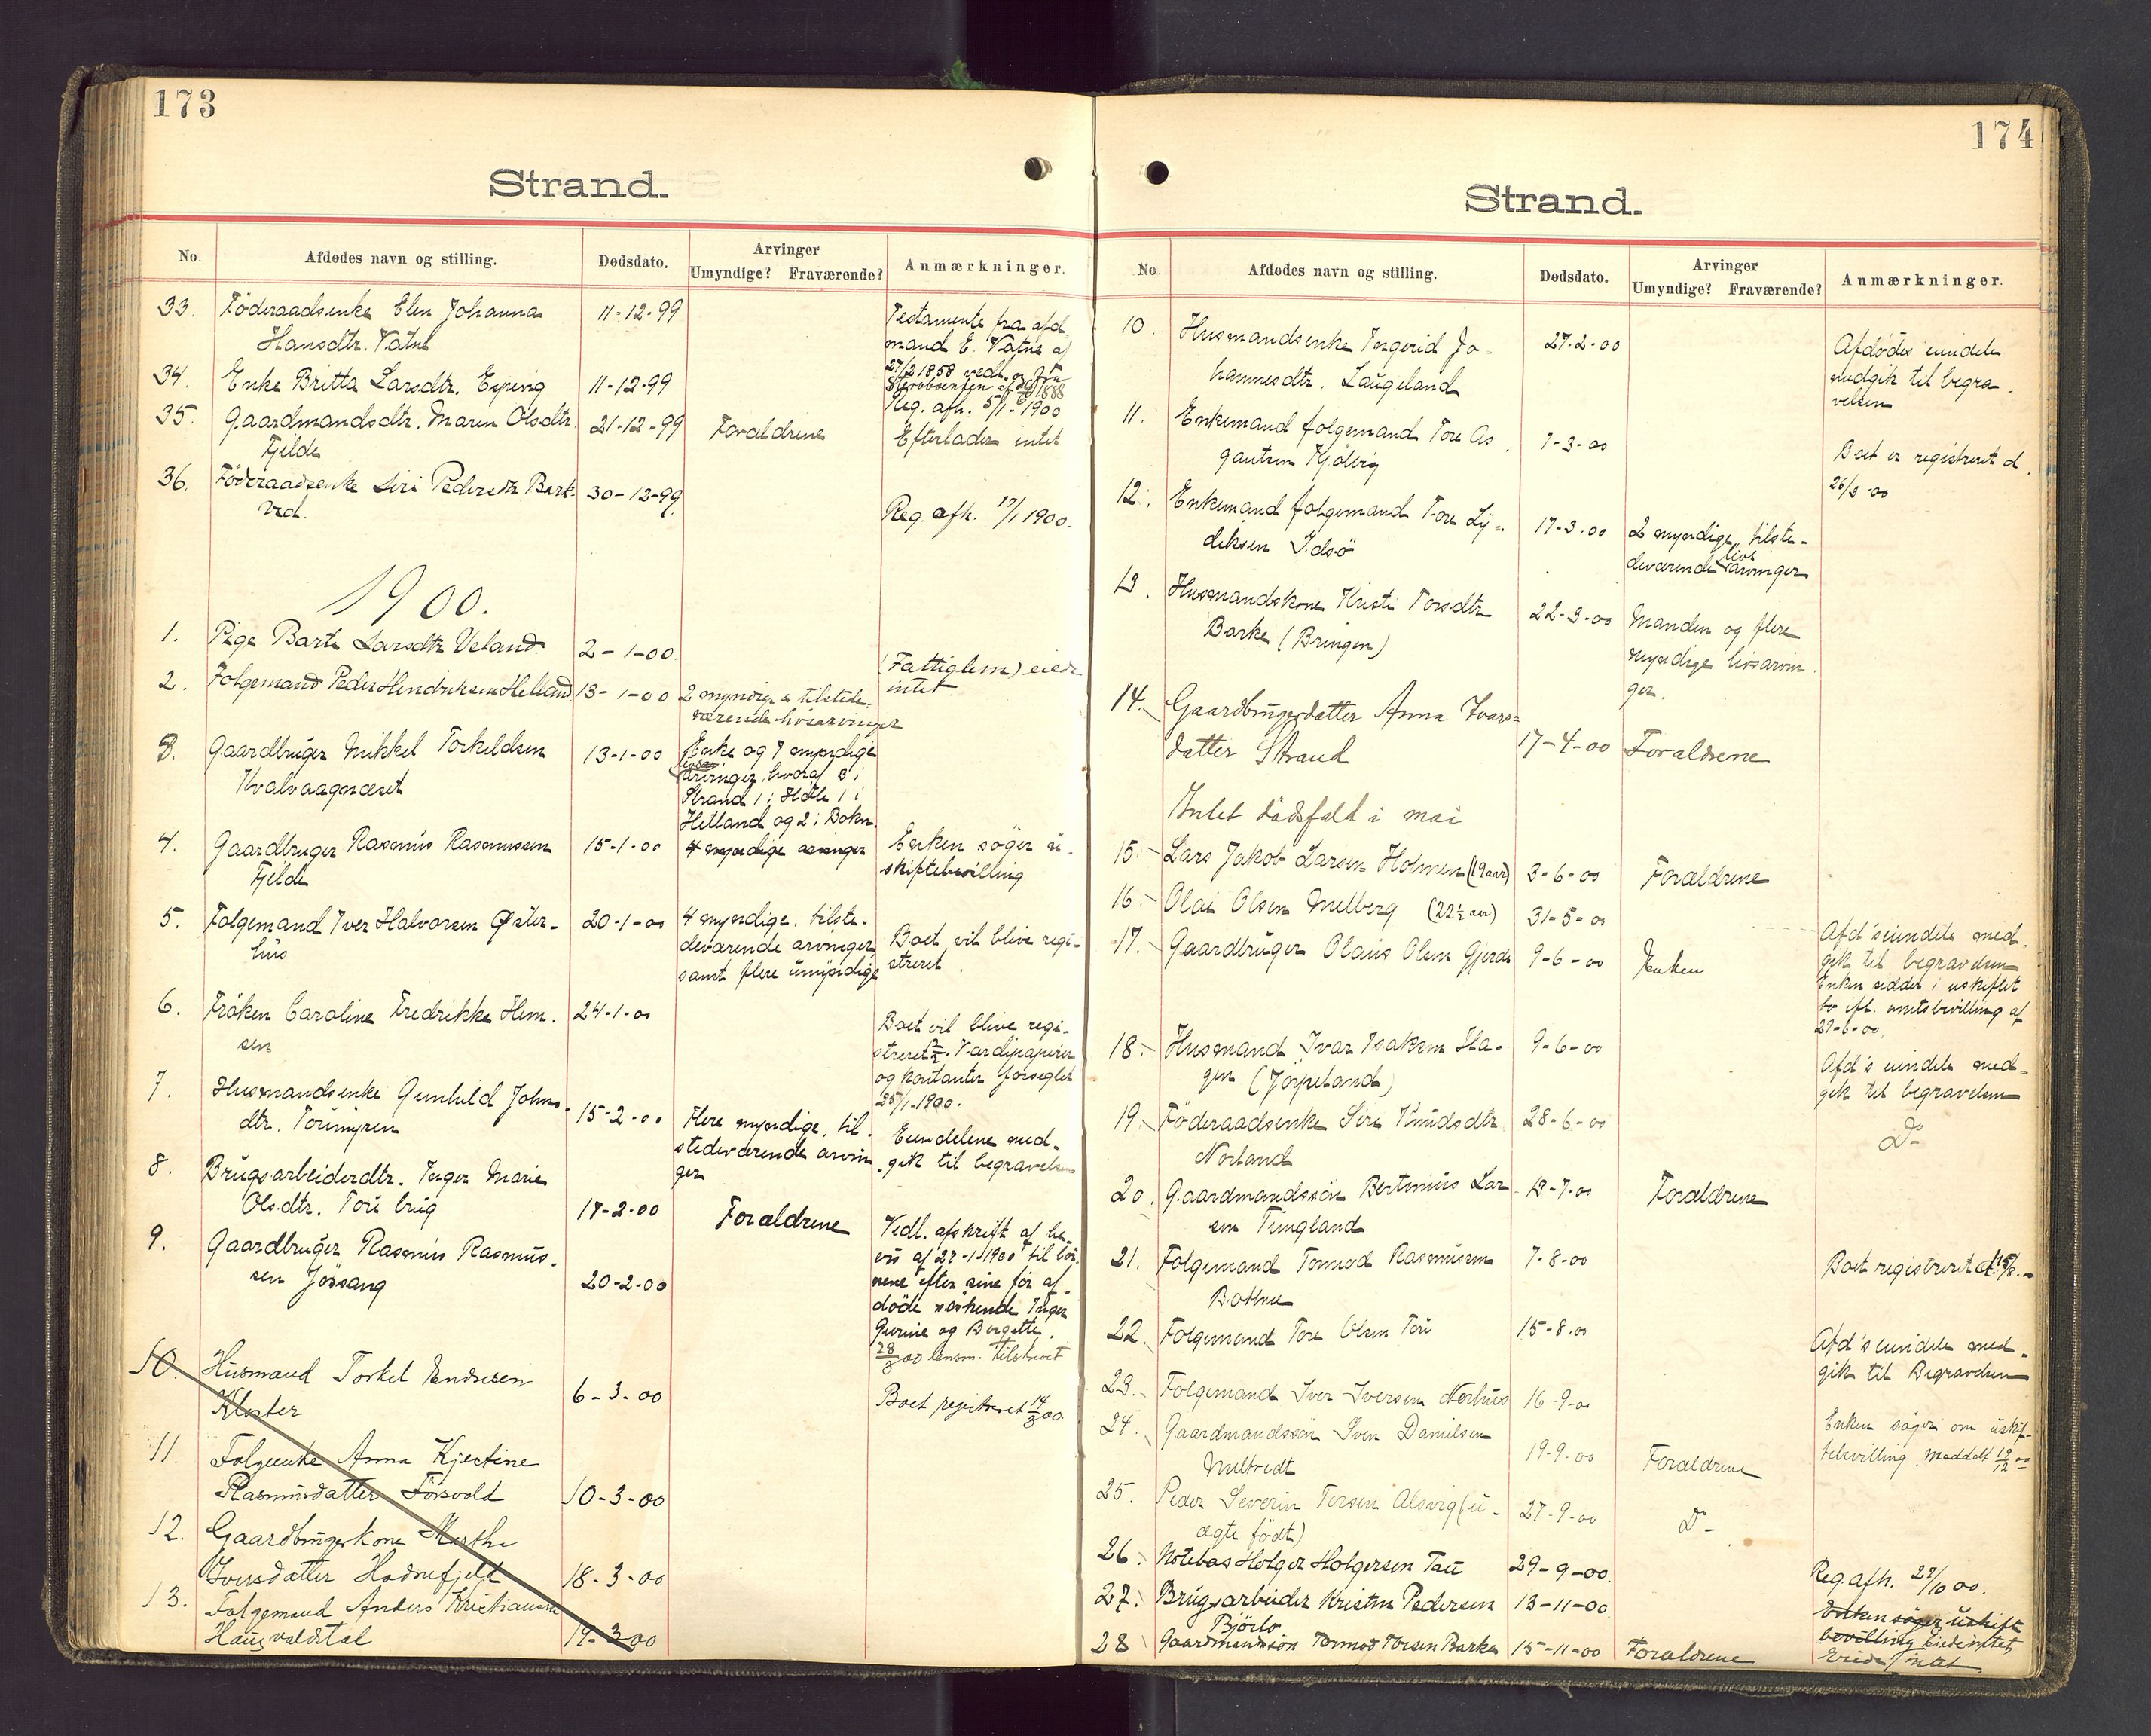 173
Strand.
No. Afdødes navn og stilling. Dødsdato. Arvinger Umyndige? Fraværende? Anmærkninger.
33. Föderaadsenke Elen Johanna 11-12-99 Testamente fra afd.
Hansdtr. Vatne mand E. Vatne af
27/2 1858 vedl. og fra
34. Enke Britta Larsdtr. Espevig 11-12-99
Reg. afh. 5/1 - 1900
35. Gaardmandsdtr. Maren Olsdtr. 21-12-99 Forældrene Efterlader intet
Fjelde
36. Föderaadsenke Siri Pedersdtr Bark- 30-12-99. Reg. afh. 17/1 1900.
ved.
1900.
1. Pige Barte Larsdtr Veland 2-1-00. (Fattiglem) eiede
intet.
2. Folgemand Peder Hendriksen Helland 13-1-00 2 myndige tilstede-
værende livsarvinger
3. Gaardbruger Mikkel Torkildsen 13-1-00 Enke og 7 myndige
Kvalvaagnæset livs arvinger, hvoraf 3 i
Strand 1 i Höle 1 i
Hetland og 2 i Bokn.
4. Gaardbruger Rasmus Rasmussen 15-1-00 4 myndige arvinger Enken söger u-
Fjelde skiftebevilling
5. Folgemand Iver Halvorsen Øster- 20-1-00 4 myndige, tilste-
hus deværende arvinger Boet vil blive regi-
samt flere umyndige streret.
6. Fröken Caroline Fredrikke Hem- 24-1-00 Boet vil blive regi-
sen streret. Værdipapirer
og kontanter forseglet
25/1-1900.
7. Husmandsenke Gunhild Johns- 15-2-00 Flere myndige, til- Eiendelene med-
dtr. Toumyren stedeværende arvin- gik til begravelsen
ger
8. Brugsarbeiderdtr. Inger Marie
Olsdtr. Tou brug 17-2-00 Forældrene
9. Gaardbruger Rasmus Rasmus- 20-2-00 Vedl. afskrift af be-
sen Jössang vis af 27-1-1900 til bör-
nene efter sine för af-
döde söskende Inger
Gurine og Bergitte.
28/3 00 lensm. tilskrevet
10. Husmand Torkel Endresen 6-3-00 Boet registreret 14/3 00.
Kloster
11. Folgeenke Anna Kjestine
Rasmusdatter Forsvold 10-3-00
12. Gaardbrugerkone Marthe
Iversdatter Hodnefjeld 18-3-00
13. Folgemand Anders Kristiansen
Haugvaldstal 19-3-00
174
Strand.
No. Afdødes navn og stilling. Dødsdato. Arvinger Umyndige? Fraværende? Anmærkninger.
10. Husmandsenke Ingerid Jo- 27-2-00 Afdödes eiendele
hannesdtr. Laugeland medgik til begra-
velsen
11. Enkemand folgemand Tore As- 7-3-00 Boet er registreret d.
gautsen Fjölvig 26/3-00
12. Enkemand folgemand Tore Ly- 17-3-00 2 myndige, tilste-
diksen Idsö deværende livs arvinger
13. Husmandskone Kristi Torsdtr 22-3-00 Manden og flere
Barke (Bringen) myndige livsarvin-
ger.
14. Gaardbrugerdatter Anna Ivars-
datter Strand 17-4-00 Forældrene
Intet dödsfald i mai
15. Lars Jakob Larsen Holmen (19 aar) 3-6-00 Forældrene
16. Olai Olsen Melberg (22½ aar) 31-5-00
17. Gaardbruger Olaus Olsen Gjerde 9-6-00 Enken Afd's eiendele med-
gik til begravelsen
Enken sidder i uskiftet
bo efter amtsbevilling af
29-6-00
18. Husmand Ivar Isaksen Ha- 9-6-00 Afd's eiendele med-
gen (Jörpeland) gik til begravelsen
19. Föderaadsenke Siri Knudsdtr 28-6-00 Do
Norland
20. Gaardmandssön Bertinius Lar- 13-7-00 Forældrene
sen Tungland
21. Folgemand Tormod Rasmussen 7-8-00 Boet registreret d. 15/8.
Botne
22. Folgemand Tore Olsen Tou 15-8-00 Afd's eiendele med-
gik til Begravelsen
23. Folgemand Iver Iversen Nerhus 16-9-00 Enken söger om uskif-
24. Gaardmandssön Sven Danielsen 19-9-00 Forældrene tebevilling. Meddelt 19/12 00
Meltvedt
25. Peder Severin Torsen Alsvig (u- 27-9-00 Do
ægte födt)
26. Notebas Holger Holgersen Tau 29-9-00. Reg. afh. 27/10 00.
27. Brugsarbeider Kristen Pedersen 13-11-00 Enken söger uskifte
Björlo bevilling Eiede intet
28 Gaardmandssön Tormod Torsen Barke 15-11-00 Forældrene Eiede intet.